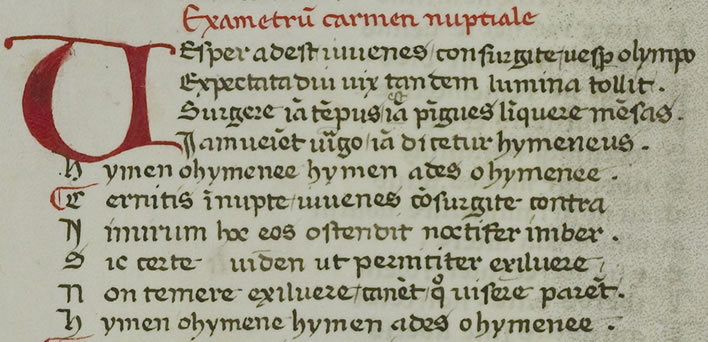 Exametrū carmen nuptiale
VEsper adest iuuenes/consurgite/uesꝑ olympo
Expectata diu uix tandem lumina tollit.
Surgere iā tēpus/iā pīgues līquere mēsas.
Iamueiēt uirgo/iā dicetur hymeneus.
hymen ohymenee hymen ades ohymenee.
Cernitis īnupte/iuuenes cōsurgite contra
Nimirum hoc eos ostendit noctifer imber.
Sic certe uiden ut perniciter exiluere/
Non temere exiluere/canēt qͦ uisere parēt.
hymen ohymene hymen ades ohymenee.